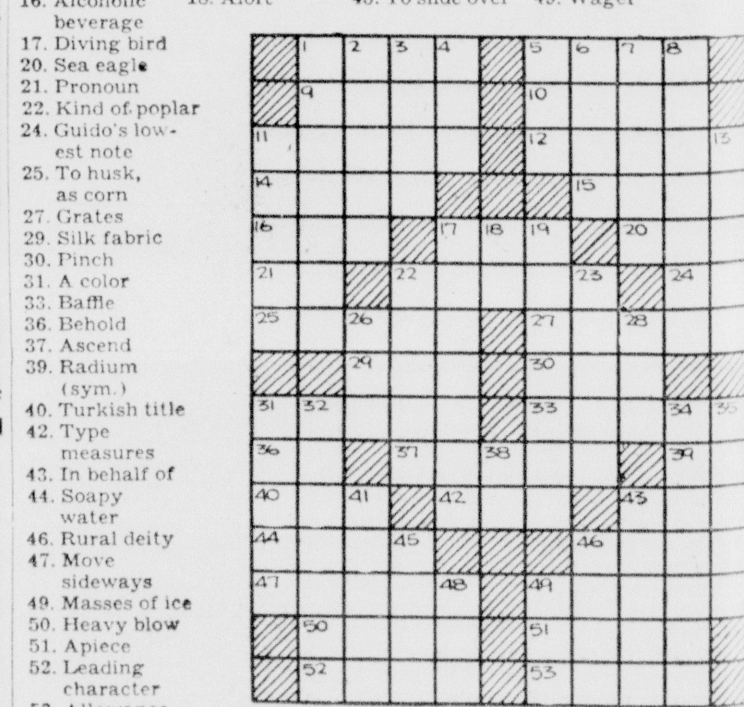 16. Alcoholic
beverage
17. Diving bird
20. Sea eagle
21. Pronoun
22. Kind of poplar
24. Guido's low-
est note
25. To husk,
as corn
27. Grates
29. Silk fabric
30. Pinch
31. A color
33. Baffle
36. Behold
37. Ascend
39. Radium
(sym.)
40. Turkish title
42. Type
measures
43. In behalf of
44. Soapy
water
46. Rural deity
47. Move
sideways
49. Masses of ice
50. Heavy blow
51. Apiece
52. Leading
character
53. Allowance
18. Aloft
48. To slide over
49. Wager
1 2 3 4 5 6 7 8
9 10
11 12 13
14 15
16 17 18 19 20
21 22 23 24
25 26 27 28
29 30
31 32 33 34 35
36 37 38 39
40 41 42 43
44 45 46
47 48 49
50 51
52 53